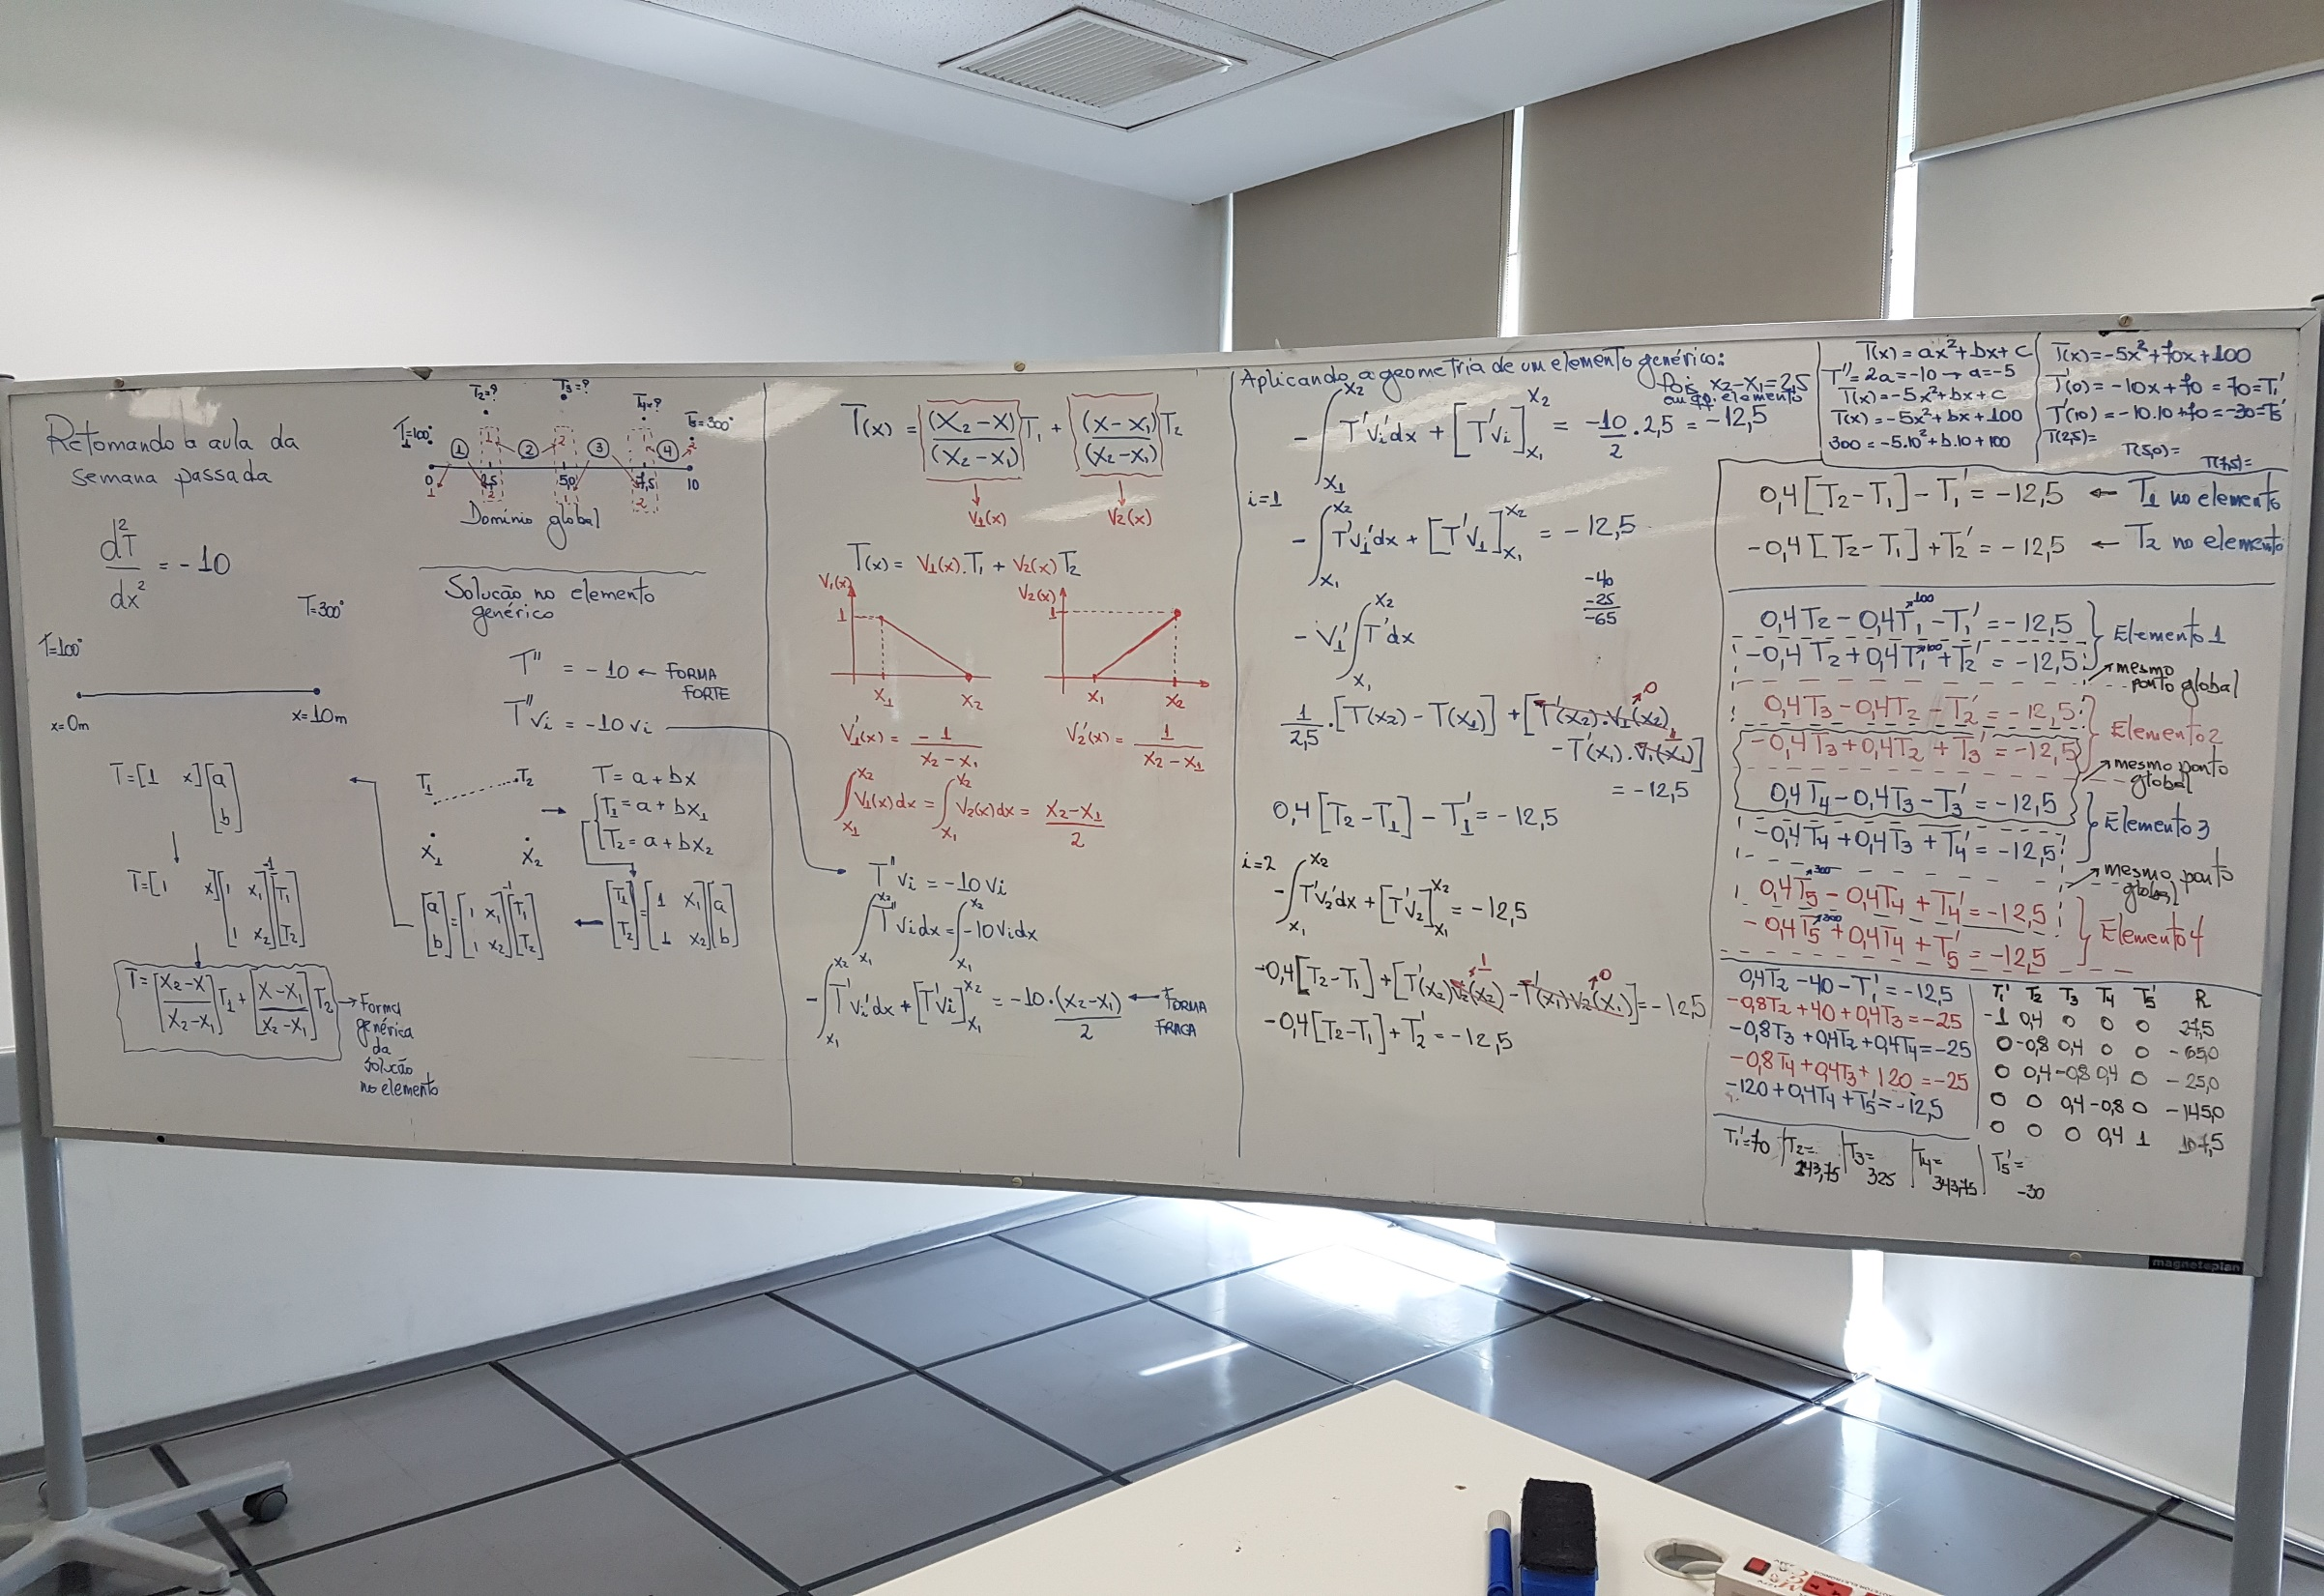 Retomando a aula da
semana passada
d²T
dx² = -10
T=100°
T=300°
x=0m
x=10m
T₂=?
T₃=?
T₄=?
T₁=100°
T₅=300°
1 2 3 4
1 2 2
0 2,5 5,0 7,5 10
1 2 2 2
Domínio global
Solucão no elemento
genérico
T'' = -10 ← FORMA
FORTE
T''vi = -10vi
T₁ T₂
x₁ x₂
T = a + bx
T₁ = a + bx₁
T₂ = a + bx₂
[T₁ T₂] = [1 x₁ 1 x₂][a b]
[a b] = [1 x₁ 1 x₂]⁻¹[T₁ T₂]
T=[1 x][a b]
T=[1 x][1 x₁ 1 x₂]⁻¹[T₁ T₂]
T=[x₂-x / x₂-x₁]T₁ + [x-x₁ / x₂-x₁]T₂ → Forma
genérica
da
solucão
no elemento
T(x) = (x₂-x)/(x₂-x₁) T₁ + (x-x₁)/(x₂-x₁) T₂
V₁(x) V₂(x)
T(x) = V₁(x).T₁ + V₂(x)T₂
V₁(x) 1 x₁ x₂
V₂(x) 1 x₁ x₂
V₁'(x) = -1/(x₂-x₁)
V₂'(x) = 1/(x₂-x₁)
∫x₁x₂ V₁(x)dx = ∫x₁x₂ V₂(x)dx = (x₂-x₁)/2
T''vi = -10vi
∫x₁x₂ T''vi dx = ∫x₁x₂ -10vi dx
-∫x₁x₂ T'vi'dx + [T'vi]x₁x₂ = -10.(x₂-x₁)/2 ← FORMA
FRACA
Aplicando a geometria de um elemento genérico:
pois x₂-x₁=2,5
em qq. elemento
-∫x₁x₂ T'vi'dx + [T'vi]x₁x₂ = -10/2 . 2,5 = -12,5
i=1
-∫x₁x₂ T'v₁'dx + [T'v₁]x₁x₂ = -12,5
-40
-25
-65
-V₁'∫x₁x₂ T'dx
1/2,5 .[T(x₂) - T(x₁)] + [T'(x₂).V₁(x₂) 0
-T'(x₁).V₁(x₁)] 1
= -12,5
0,4[T₂-T₁] - T₁' = -12,5
i=2
-∫x₁x₂ T'v₂'dx + [T'v₂]x₁x₂ = -12,5
-0,4[T₂-T₁] + [T'(x₂)V₂(x₂) 1 - T'(x₁)V₂(x₁) 0] = -12,5
-0,4[T₂-T₁] + T₂' = -12,5
T(x) = ax²+bx+c
T'' = 2a = -10 → a=-5
T(x) = -5x²+bx+c
T(x) = -5x²+bx+100
300 = -5.10²+b.10+100
T(x) = -5x²+70x+100
T'(0) = -10x+70 = 70=T₁'
T'(10) = -10.10+70 = -30=T₅'
T(2,5)=
T(5,0)=
T(7,5)=
0,4[T₂-T₁] - T₁' = -12,5 ← T₁ no elemento
-0,4[T₂-T₁] + T₂' = -12,5 ← T₂ no elemento
0,4T₂ - 0,4T₁ 100 - T₁' = -12,5 } Elemento 1
-0,4T₂ + 0,4T₁ 100 + T₂' = -12,5
mesmo
ponto global
0,4T₃ - 0,4T₂ - T₂' = -12,5 } Elemento 2
-0,4T₃ + 0,4T₂ + T₃' = -12,5
mesmo ponto
global
0,4T₄ - 0,4T₃ - T₃' = -12,5 } Elemento 3
-0,4T₄ + 0,4T₃ + T₄' = -12,5
mesmo ponto
global
0,4T₅ 300 - 0,4T₄ + T₄' = -12,5 } Elemento 4
-0,4T₅ 300 + 0,4T₄ + T₅' = -12,5
0,4T₂ - 40 - T₁' = -12,5
-0,8T₂ + 40 + 0,4T₃ = -25
-0,8T₃ + 0,4T₂ + 0,4T₄ = -25
-0,8T₄ + 0,4T₃ + 120 = -25
-120 + 0,4T₄ + T₅' = -12,5
T₁' T₂ T₃ T₄ T₅' R
-1 0,4 0 0 0 27,5
0 -0,8 0,4 0 0 -65,0
0 0,4 -0,8 0,4 0 -25,0
0 0 0,4 -0,8 0 -145,0
0 0 0 0,4 1 107,5
T₁'=70 | T₂= 243,75 | T₃= 325 | T₄= 343,75 | T₅'= -30
magnetoplan